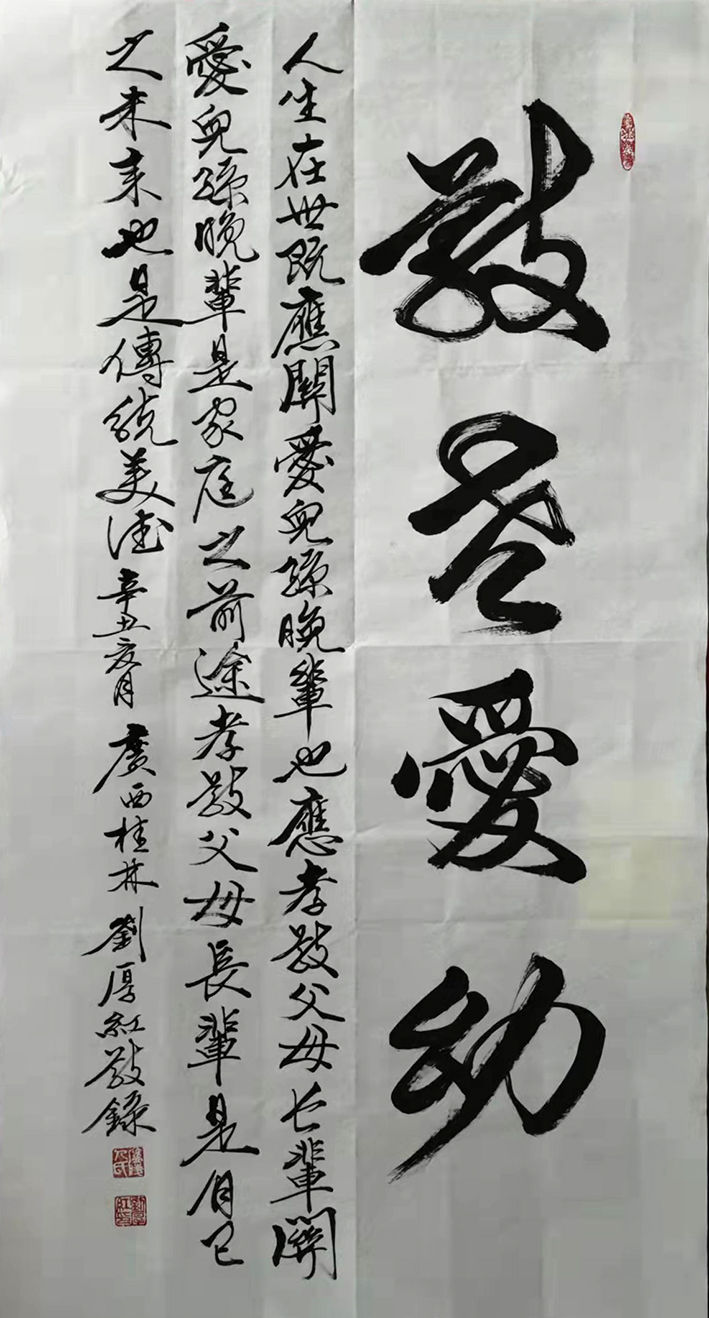 敬老愛幼
人生在世既應關愛兒孫晚輩也應孝敬父母长輩關
愛兒孫晚輩是家庭之前途孝敬父母長輩是自己
之未来也是傳統美德辛丑夏月廣西桂林劉厚紅敬錄